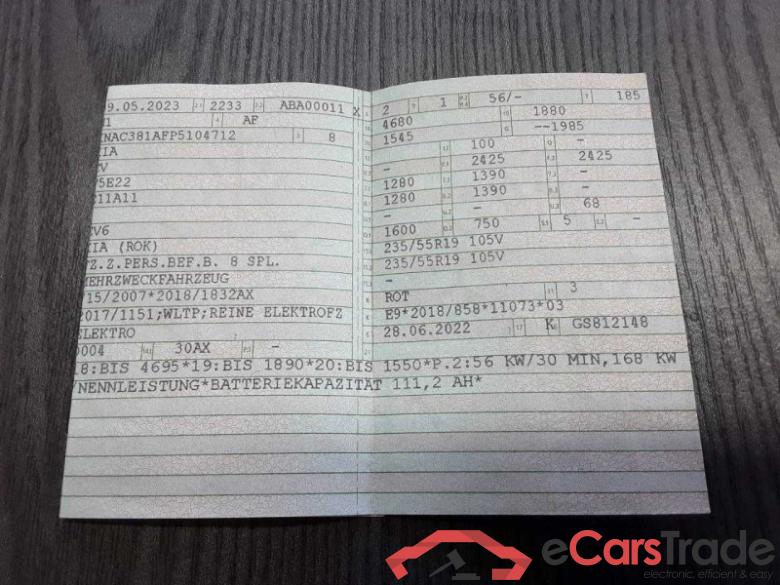 9.05.2023 2233 ABA00011 X 2 1 56/- 185
1 AF 4680 1880
NAC381AFP5104712 8 1545 --1985
IA 100 -
V - 2425 2425
5E22 1280 1390 -
C11A11 1280 1390 -
- - 68
EV6 1600 750 5 -
KIA (ROK) 235/55R19 105V
FZ.Z.PERS.BEF.B. 8 SPL. 235/55R19 105V
MEHRZWECKFAHRZEUG -
715/2007*2018/1832AX ROT 3
2017/1151;WLTP;REINE ELEKTROFZ E9*2018/858*11073*03
ELEKTRO 28.06.2022 K GS812148
0004 30AX -
18:BIS 4695*19:BIS 1890*20:BIS 1550*P.2:56 KW/30 MIN,168 KW
/NENNLEISTUNG*BATTERIEKAPAZITÄT 111,2 AH*
eCarsTrade
electronic, efficient & easy